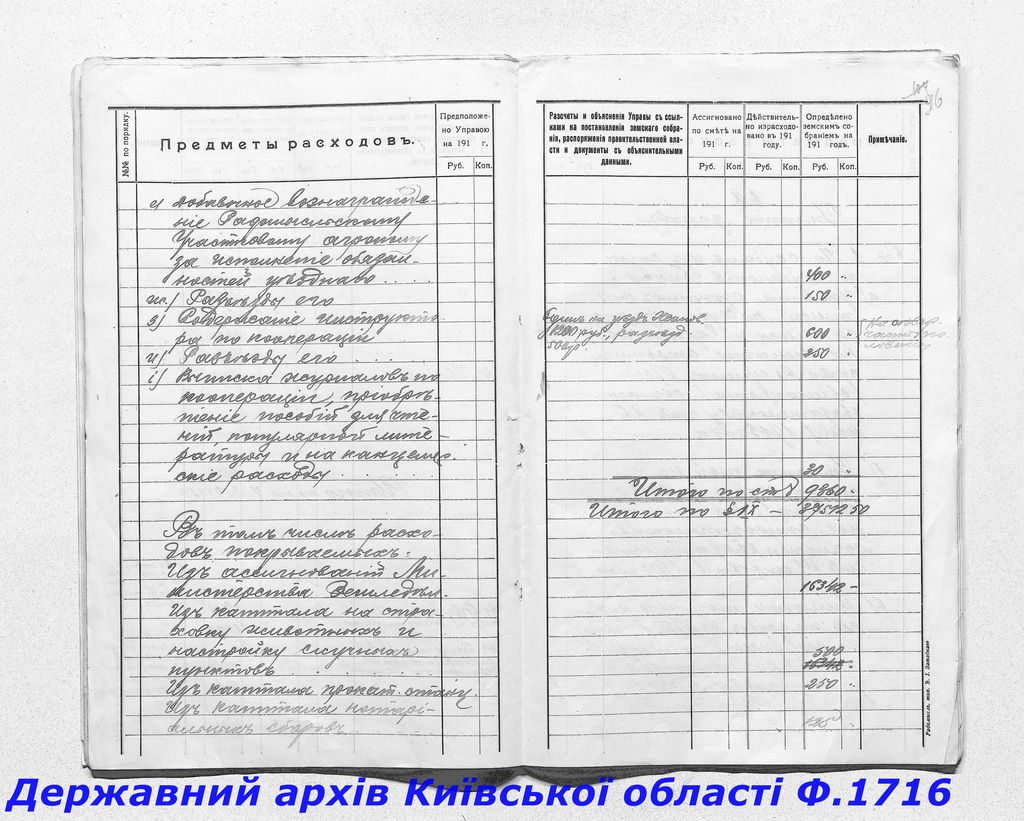 96
№№ по порядку.
Предметы расходовъ.
Предположе-
но Управою
на 191 г.
Руб. Коп.
е) Добавочное вознагражде-
ніе Радомысльскому
Участковому агроному
за исполненіе обязан-
ностей уѣзднаго . . . .
ж) Разъѣзды его
з) Содержаніе инструкто-
ра по кооперації
и) Разъѣзды его . . . .
і) Выписка журналовъ по
кооперації, пріобрѣ-
теніе пособій для чте-
ній, популярной лите-
ратуры и на канцеляр.
скіе расходы . . . .
Въ томъ числѣ расхо-
довъ покрываемыхъ:
Изъ ассигнованій Ми-
нистерства Земледѣл.
Изъ капитала на стра-
ховку животныхъ и
настройку случныхъ
пунктовъ . . .
Изъ капитала прокат. станц.
Изъ капитала нотарі-
альныхъ сборовъ . .
Разсчеты и объясненія Управы съ ссыл-
ками на постановленія земскаго собра-
нія, распоряженія правительственной вла-
сти и документы съ объяснительными
данными.
Ассигновано
по смѣтѣ на
191 г.
Руб. Коп.
Дѣйствитель-
но израсходо-
вано въ 191
году.
Руб. Коп.
Опредѣлено
земскимъ со-
браніемъ на
191 годъ.
Руб. Коп.
Примѣчаніе.
400 "
150 "
1200 руб., разъѣзд
500 р.
600 "
250 "
30 "
Итого по ст. 9360 "
Итого по § IX — 39512 50
16342 —
500
16342
250 "
125 "
Радомысль, тип. Э. І. Заводнаго
Державний архів Київської області Ф.1716